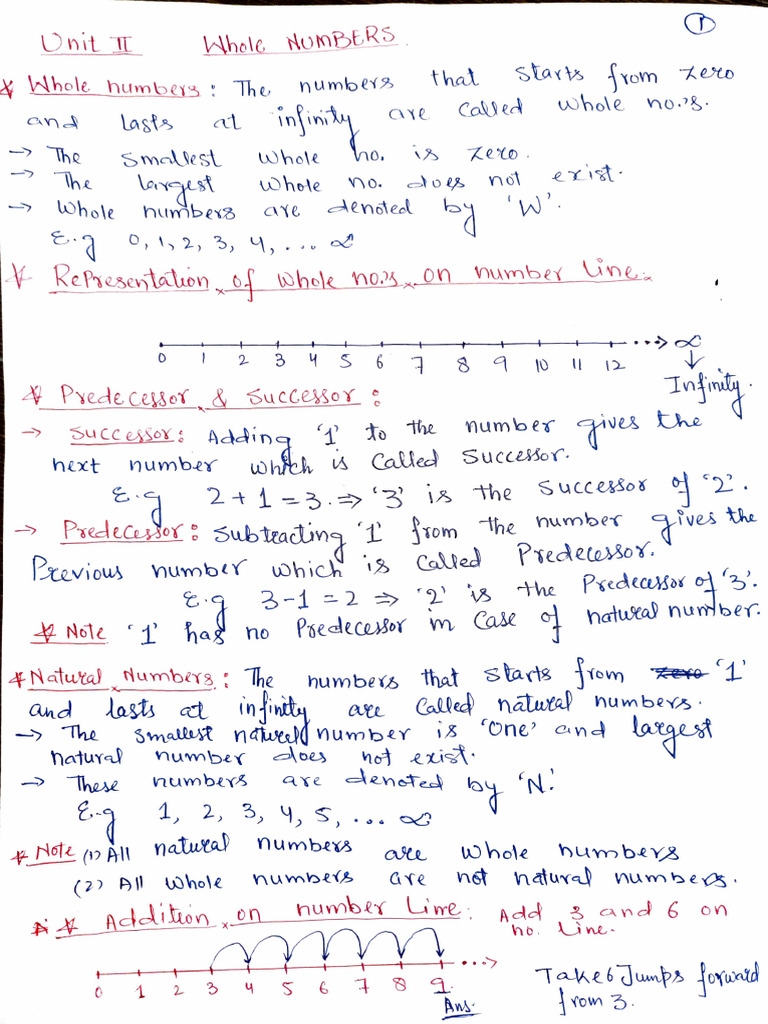 1
Unit II Whole NUMBERS.
* Whole numbers: The numbers that starts from zero
and lasts at infinity are called whole no.'s.
→ The smallest whole no. is zero.
→ The largest whole no. does not exist.
→ Whole numbers are denoted by 'W'.
E.g 0, 1, 2, 3, 4, ... ∞
* Representation of whole no.'s on number line:
0 1 2 3 4 5 6 7 8 9 10 11 12 ...→ ∞
Infinity.
* Predecessor & Successor:
→ Successor: Adding '1' to the number gives the
next number which is called successor.
E.g 2 + 1 = 3. ⇒ '3' is the successor of '2'.
→ Predecessor: Subtracting '1' from the number gives the
Previous number which is called Predecessor.
E.g 3 - 1 = 2 ⇒ '2' is the Predecessor of '3'.
* Note '1' has no Predecessor in case of natural number.
* Natural Numbers: The numbers that starts from zero '1'
and lasts at infinity are called natural numbers.
→ The smallest natural number is 'one' and largest
natural number does not exist.
→ These numbers are denoted by 'N'.
E.g 1, 2, 3, 4, 5, ... ∞
* Note (1) All natural numbers are whole numbers
(2) All whole numbers are not natural numbers.
* Addition on number Line: Add 3 and 6 on
no. line.
0 1 2 3 4 5 6 7 8 9
Ans.
Take 6 Jumps forward
from 3.